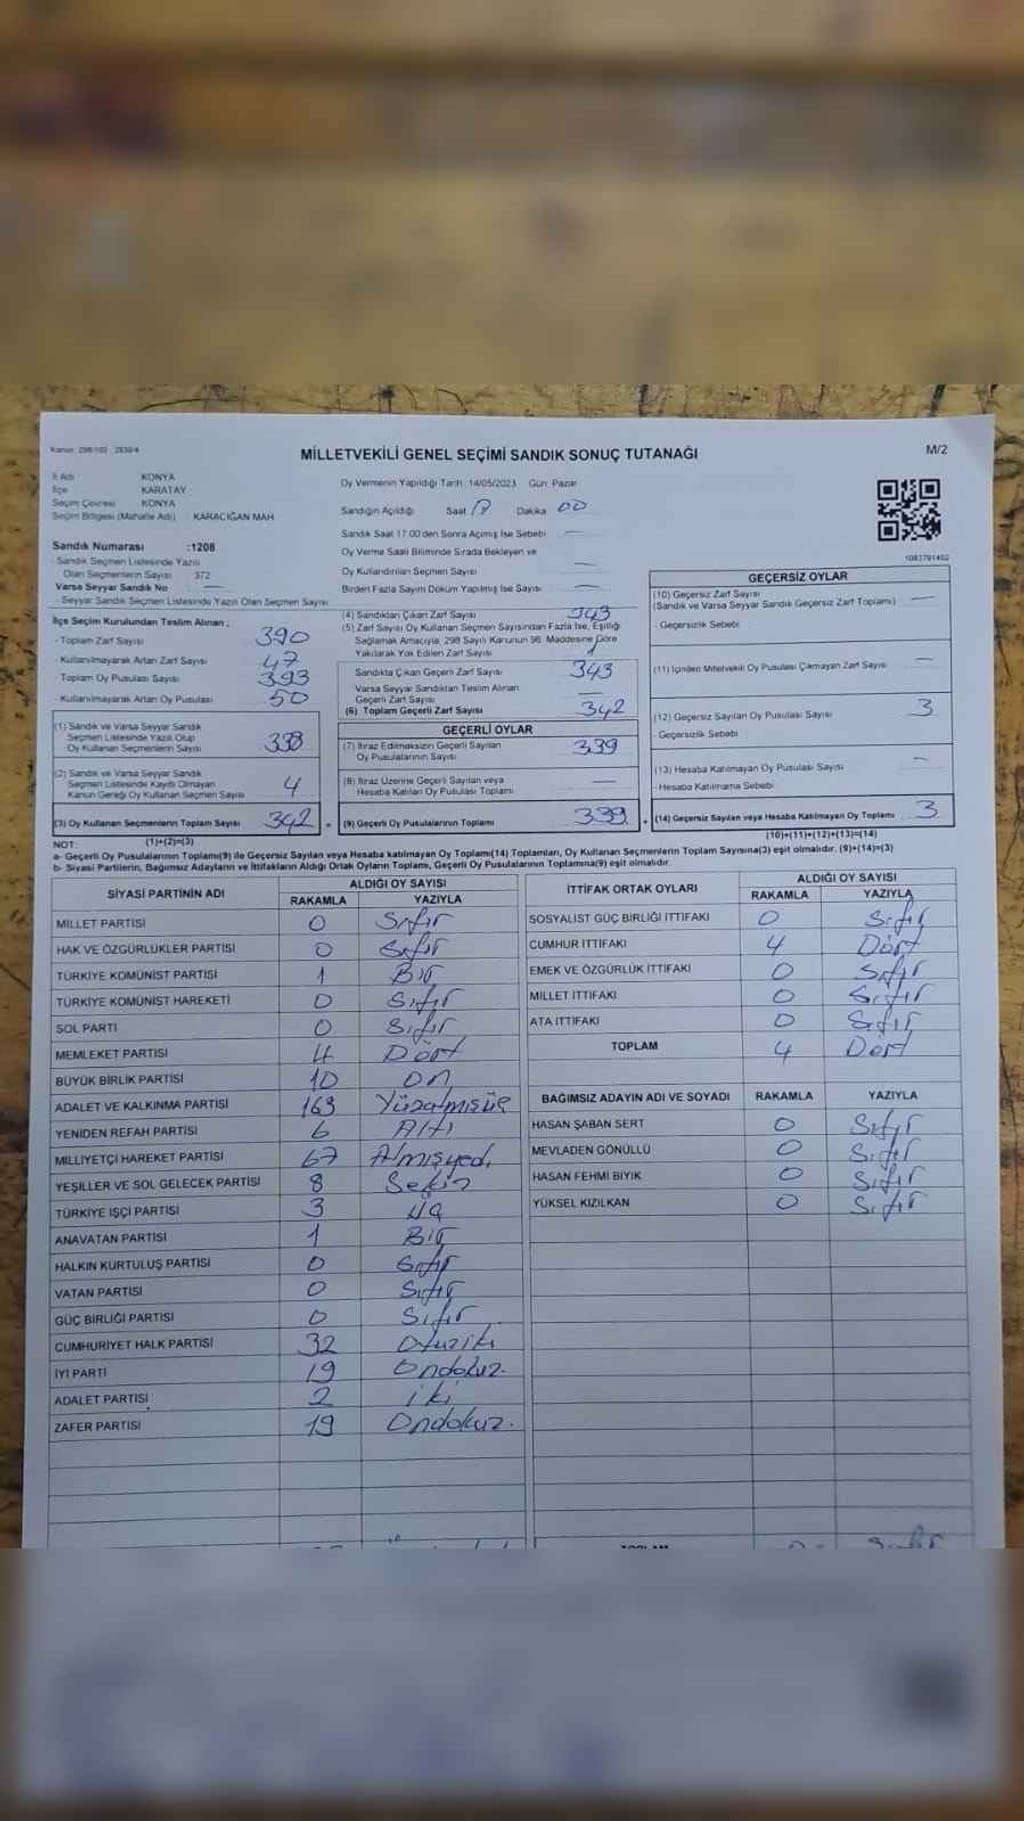 Kanun: 298/102 2839/4
MİLLETVEKİLİ GENEL SEÇİMİ SANDIK SONUÇ TUTANAĞI
M/2
İl Adı KONYA
İlçe KARATAY
Seçim Çevresi KONYA
Seçim Bölgesi (Mahalle Adı) KARACIĞAN MAH
Sandık Numarası :1208
Sandık Seçmen Listesinde Yazılı
Olan Seçmenlerin Sayısı 372
Varsa Seyyar Sandık No —
Seyyar Sandık Seçmen Listesinde Yazılı Olan Seçmen Sayısı
Oy Vermenin Yapıldığı Tarih :14/05/2023 Gün: Pazar
Sandığın Açıldığı Saat Dakika 00
Sandık Saat 17.00'den Sonra Açılmış İse Sebebi —
Oy Verme Saati Bitiminde Sırada Bekleyen ve
Oy Kullandırılan Seçmen Sayısı —
Birden Fazla Sayım Döküm Yapılmış İse Sayısı —
1083791402
İlçe Seçim Kurulundan Teslim Alınan ;
- Toplam Zarf Sayısı 390
- Kullanılmayarak Artan Zarf Sayısı 47
Toplam Oy Pusulası Sayısı 393
- Kullanılmayarak Artan Oy Pusulası 50
(1) Sandık ve Varsa Seyyar Sandık
Seçmen Listesinde Yazılı Olup
Oy Kullanan Seçmenlerin Sayısı 338
(2) Sandık ve Varsa Seyyar Sandık
Seçmen Listesinde Kayıtlı Olmayan
Kanun Gereği Oy Kullanan Seçmen Sayısı 4
(3) Oy Kullanan Seçmenlerin Toplam Sayısı 342
(1)+(2)=(3)
(4) Sandıktan Çıkan Zarf Sayısı 343
(5) Zarf Sayısı Oy Kullanan Seçmen Sayısından Fazla İse, Eşitliği
Sağlamak Amacıyla, 298 Sayılı Kanunun 98. Maddesine Göre
Yakılarak Yok Edilen Zarf Sayısı 1
Sandıkta Çıkan Geçerli Zarf Sayısı 343
Varsa Seyyar Sandıktan Teslim Alınan
Geçerli Zarf Sayısı —
(6) Toplam Geçerli Zarf Sayısı 342
GEÇERLİ OYLAR
(7) İtiraz Edilmeksizin Geçerli Sayılan
Oy Pusulalarının Sayısı 339
(8) İtiraz Üzerine Geçerli Sayılan veya
Hesaba Katılan Oy Pusulası Toplamı —
(9) Geçerli Oy Pusulalarının Toplamı 339
GEÇERSİZ OYLAR
(10) Geçersiz Zarf Sayısı
(Sandık ve Varsa Seyyar Sandık Geçersiz Zarf Toplamı) —
Geçersizlik Sebebi
(11) İçinden Milletvekili Oy Pusulası Çıkmayan Zarf Sayısı —
(12) Geçersiz Sayılan Oy Pusulası Sayısı 3
Geçersizlik Sebebi
(13) Hesaba Katılmayan Oy Pusulası Sayısı —
Hesaba Katılmama Sebebi
(14) Geçersiz Sayılan veya Hesaba Katılmayan Oy Toplamı 3
(10)+(11)+(12)+(13)=(14)
NOT:
a- Geçerli Oy Pusulalarının Toplamı(9) ile Geçersiz Sayılan veya Hesaba katılmayan Oy Toplamı(14) Toplamları, Oy Kullanan Seçmenlerin Toplam Sayısına(3) eşit olmalıdır. (9)+(14)=(3)
b- Siyasi Partilerin, Bağımsız Adayların ve İttifakların Aldığı Ortak Oyların Toplamı, Geçerli Oy Pusulalarının Toplamına(9) eşit olmalıdır.
SİYASİ PARTİNİN ADI ALDIĞI OY SAYISI
RAKAMLA YAZIYLA
MİLLET PARTİSİ 0 Sıfır
HAK VE ÖZGÜRLÜKLER PARTİSİ 0 Sıfır
TÜRKİYE KOMÜNİST PARTİSİ 1 Bir
TÜRKİYE KOMÜNİST HAREKETİ 0 Sıfır
SOL PARTİ 0 Sıfır
MEMLEKET PARTİSİ 4 Dört
BÜYÜK BİRLİK PARTİSİ 10 On
ADALET VE KALKINMA PARTİSİ 163 Yüzatmışüç
YENİDEN REFAH PARTİSİ 6 Altı
MİLLİYETÇİ HAREKET PARTİSİ 67 Atmışyedi
YEŞİLLER VE SOL GELECEK PARTİSİ 8 Sekiz
TÜRKİYE İŞÇİ PARTİSİ 3 Üç
ANAVATAN PARTİSİ 1 Bir
HALKIN KURTULUŞ PARTİSİ 0 Sıfır
VATAN PARTİSİ 0 Sıfır
GÜÇ BİRLİĞİ PARTİSİ 0 Sıfır
CUMHURİYET HALK PARTİSİ 32 Otuziki
İYİ PARTİ 19 Ondokuz.
ADALET PARTİSİ 2 iki
ZAFER PARTİSİ 19 Ondokuz.
İTTİFAK ORTAK OYLARI ALDIĞI OY SAYISI
RAKAMLA YAZIYLA
SOSYALİST GÜÇ BİRLİĞİ İTTİFAKI 0 Sıfır
CUMHUR İTTİFAKI 4 Dört
EMEK VE ÖZGÜRLÜK İTTİFAKI 0 Sıfır
MİLLET İTTİFAKI 0 Sıfır
ATA İTTİFAKI 0 Sıfır
TOPLAM 4 Dört
BAĞIMSIZ ADAYIN ADI VE SOYADI RAKAMLA YAZIYLA
HASAN ŞABAN SERT 0 Sıfır
MEVLADEN GÖNÜLLÜ 0 Sıfır
HASAN FEHMİ BIYIK 0 Sıfır
YÜKSEL KIZILKAN 0 Sıfır
TOPLAM 0 Sıfır